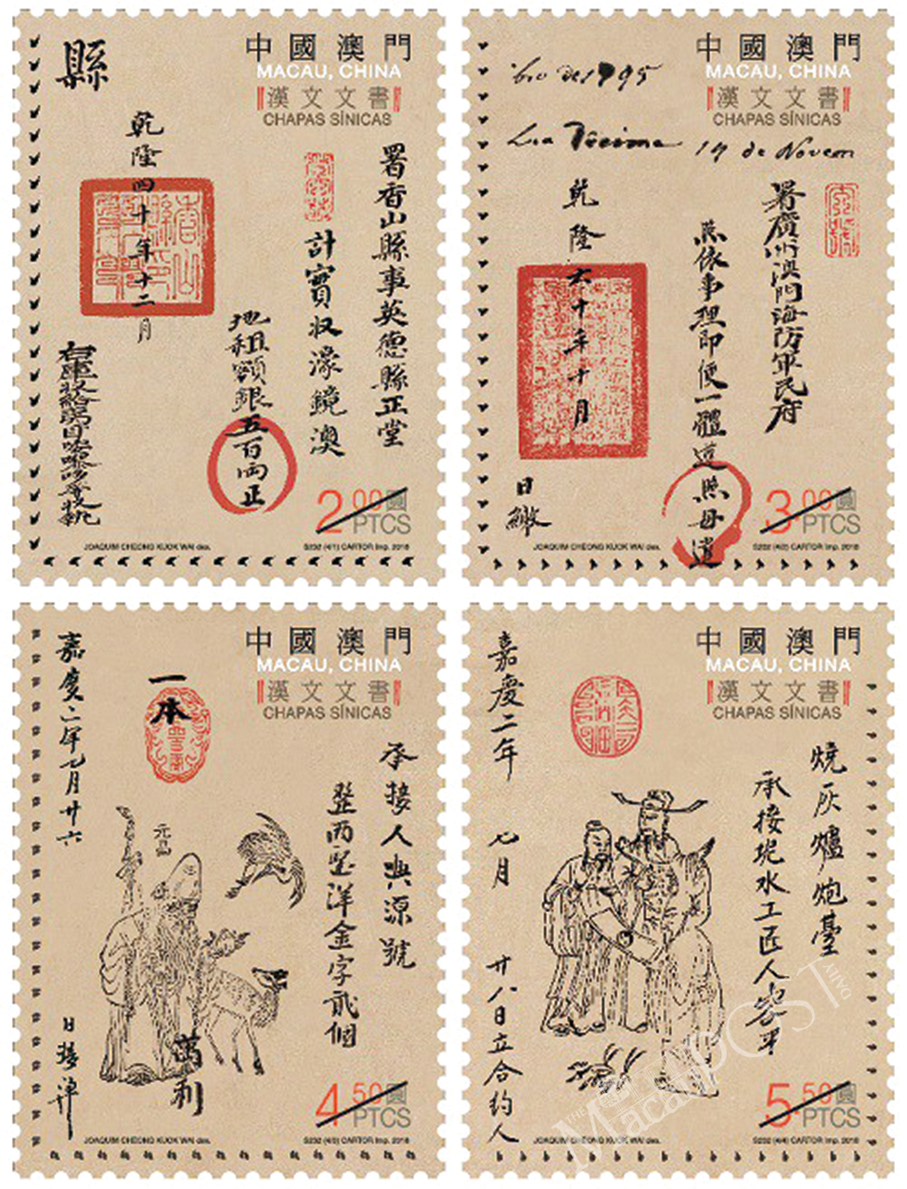 縣
中國澳門
MACAU, CHINA
漢文文書
CHAPAS SÍNICAS
署香山縣事英德縣正堂
計實收濠鏡澳
地租額銀五百両正
乾隆四十年十二月
2.00圓
PTCS
JOAQUIM CHEONG KUOK WAI des.
S232 (4/1) CARTOR Imp. 2018
中國澳門
MACAU, CHINA
漢文文書
CHAPAS SÍNICAS
de 1795
Decima 19 de Novem
署廣州澳門海防軍民府
照依事理即便一體遵照毋違
乾隆六十年十月
日檄
3.00圓
PTCS
JOAQUIM CHEONG KUOK WAI des.
S232 (4/2) CARTOR Imp. 2018
中國澳門
MACAU, CHINA
漢文文書
CHAPAS SÍNICAS
一本
承接人興源號
整西坚洋金字貳個
嘉慶二年七月廿六
日接單
萬利
4.50圓
PTCS
JOAQUIM CHEONG KUOK WAI des.
S232 (4/3) CARTOR Imp. 2018
中國澳門
MACAU, CHINA
漢文文書
CHAPAS SÍNICAS
燒灰爐炮臺
承接坭水工匠人容平
嘉慶二年 七月 廿八日立合約人
5.50圓
PTCS
JOAQUIM CHEONG KUOK WAI des.
S232 (4/4) CARTOR Imp. 2018
THE Macau POST DAILY